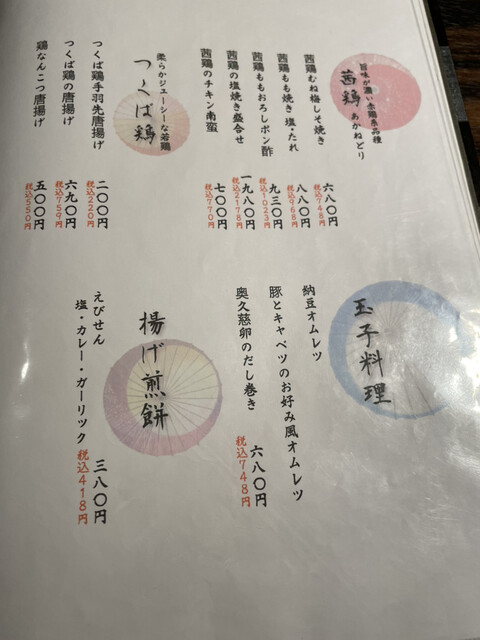 旨味が濃い赤鶏系品種
茜鶏 あかねどり
茜鶏むね梅しそ焼き 六八〇円
税込748円
茜鶏もも焼き 塩・たれ 八八〇円
税込968円
茜鶏ももおろしポン酢 九三〇円
税込1023円
茜鶏の塩焼き盛合せ 一九八〇円
税込2178円
茜鶏のチキン南蛮 七〇〇円
税込770円
柔らかジューシーな若鶏
つくば鶏
つくば鶏手羽先唐揚げ 二〇〇円
税込220円
つくば鶏の唐揚げ 六九〇円
税込759円
鶏なんこつ唐揚げ 五〇〇円
税込550円
玉子料理
納豆オムレツ
豚とキャベツのお好み風オムレツ
奥久慈卵のだし巻き
六八〇円
税込748円
揚げ煎餅
えびせん
塩・カレー・ガーリック
三八〇円
税込418円